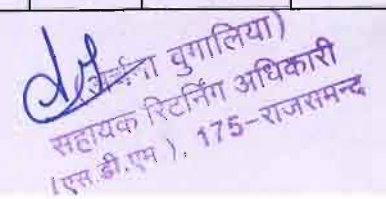 बुगालिया)
सहायक रिटर्निंग अधिकारी
(एस.डी.एम ), 175-राजसमन्द